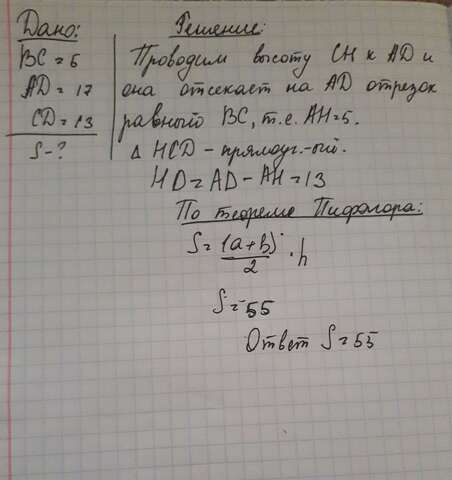 Дано:
BC = 5
AD = 17
CD = 13
S - ?
Решение:
Проводим высоту CH к AD и
она отсекает на AD отрезок
равный BC, т.е. AH = 5.
Δ HCD - прямоуг.-ый.
HD = AD - AH = 13
По теореме Пифагора:
S = (a + b) / 2 · h
S = 55
Ответ S = 55